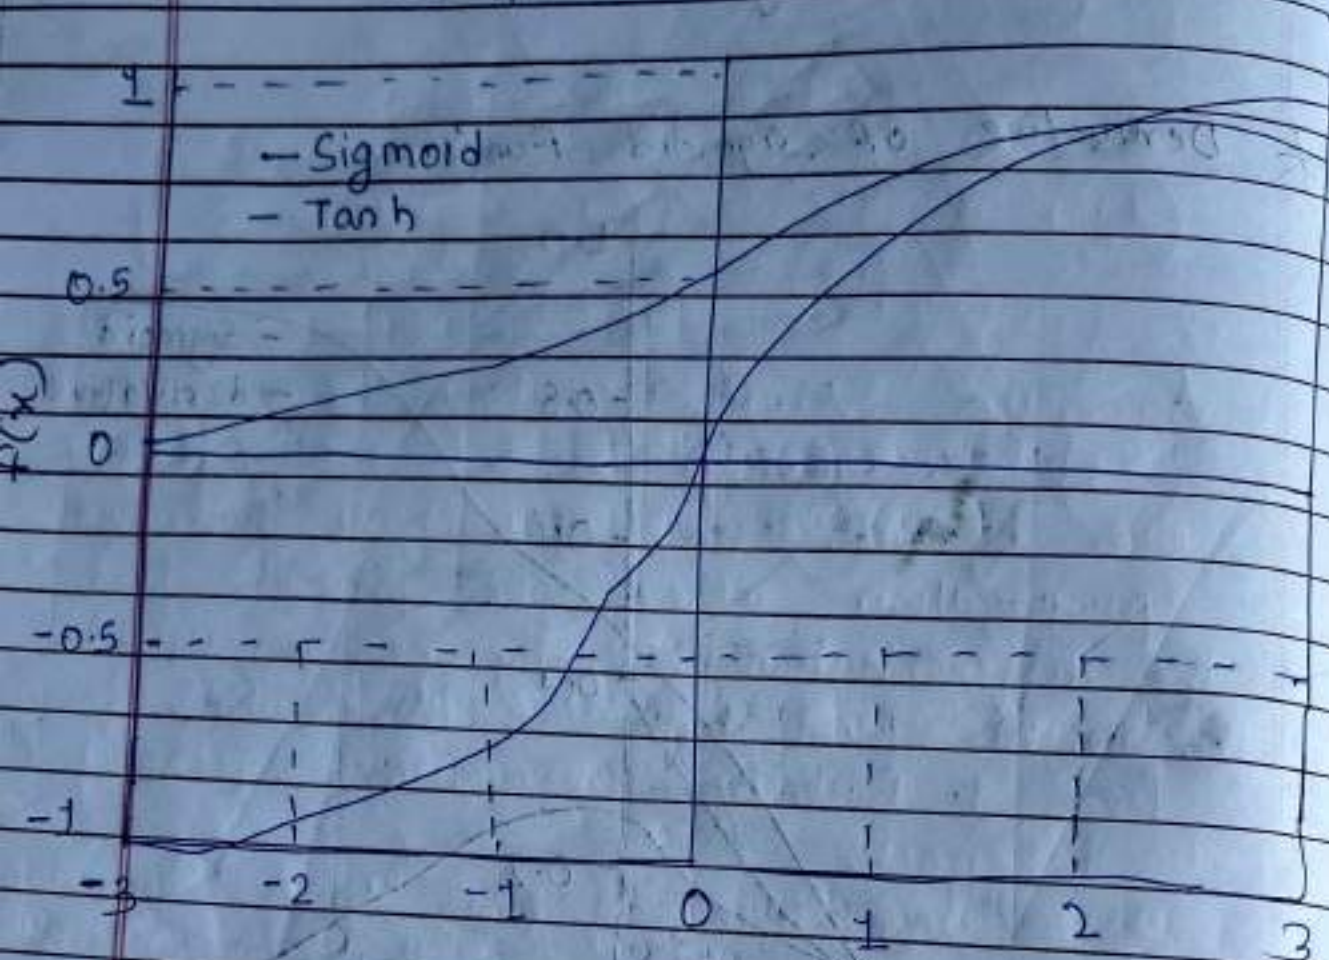 1
— Sigmoid
— Tanh
0.5
f(x)
0
-0.5
-1
-3 -2 -1 0 1 2 3